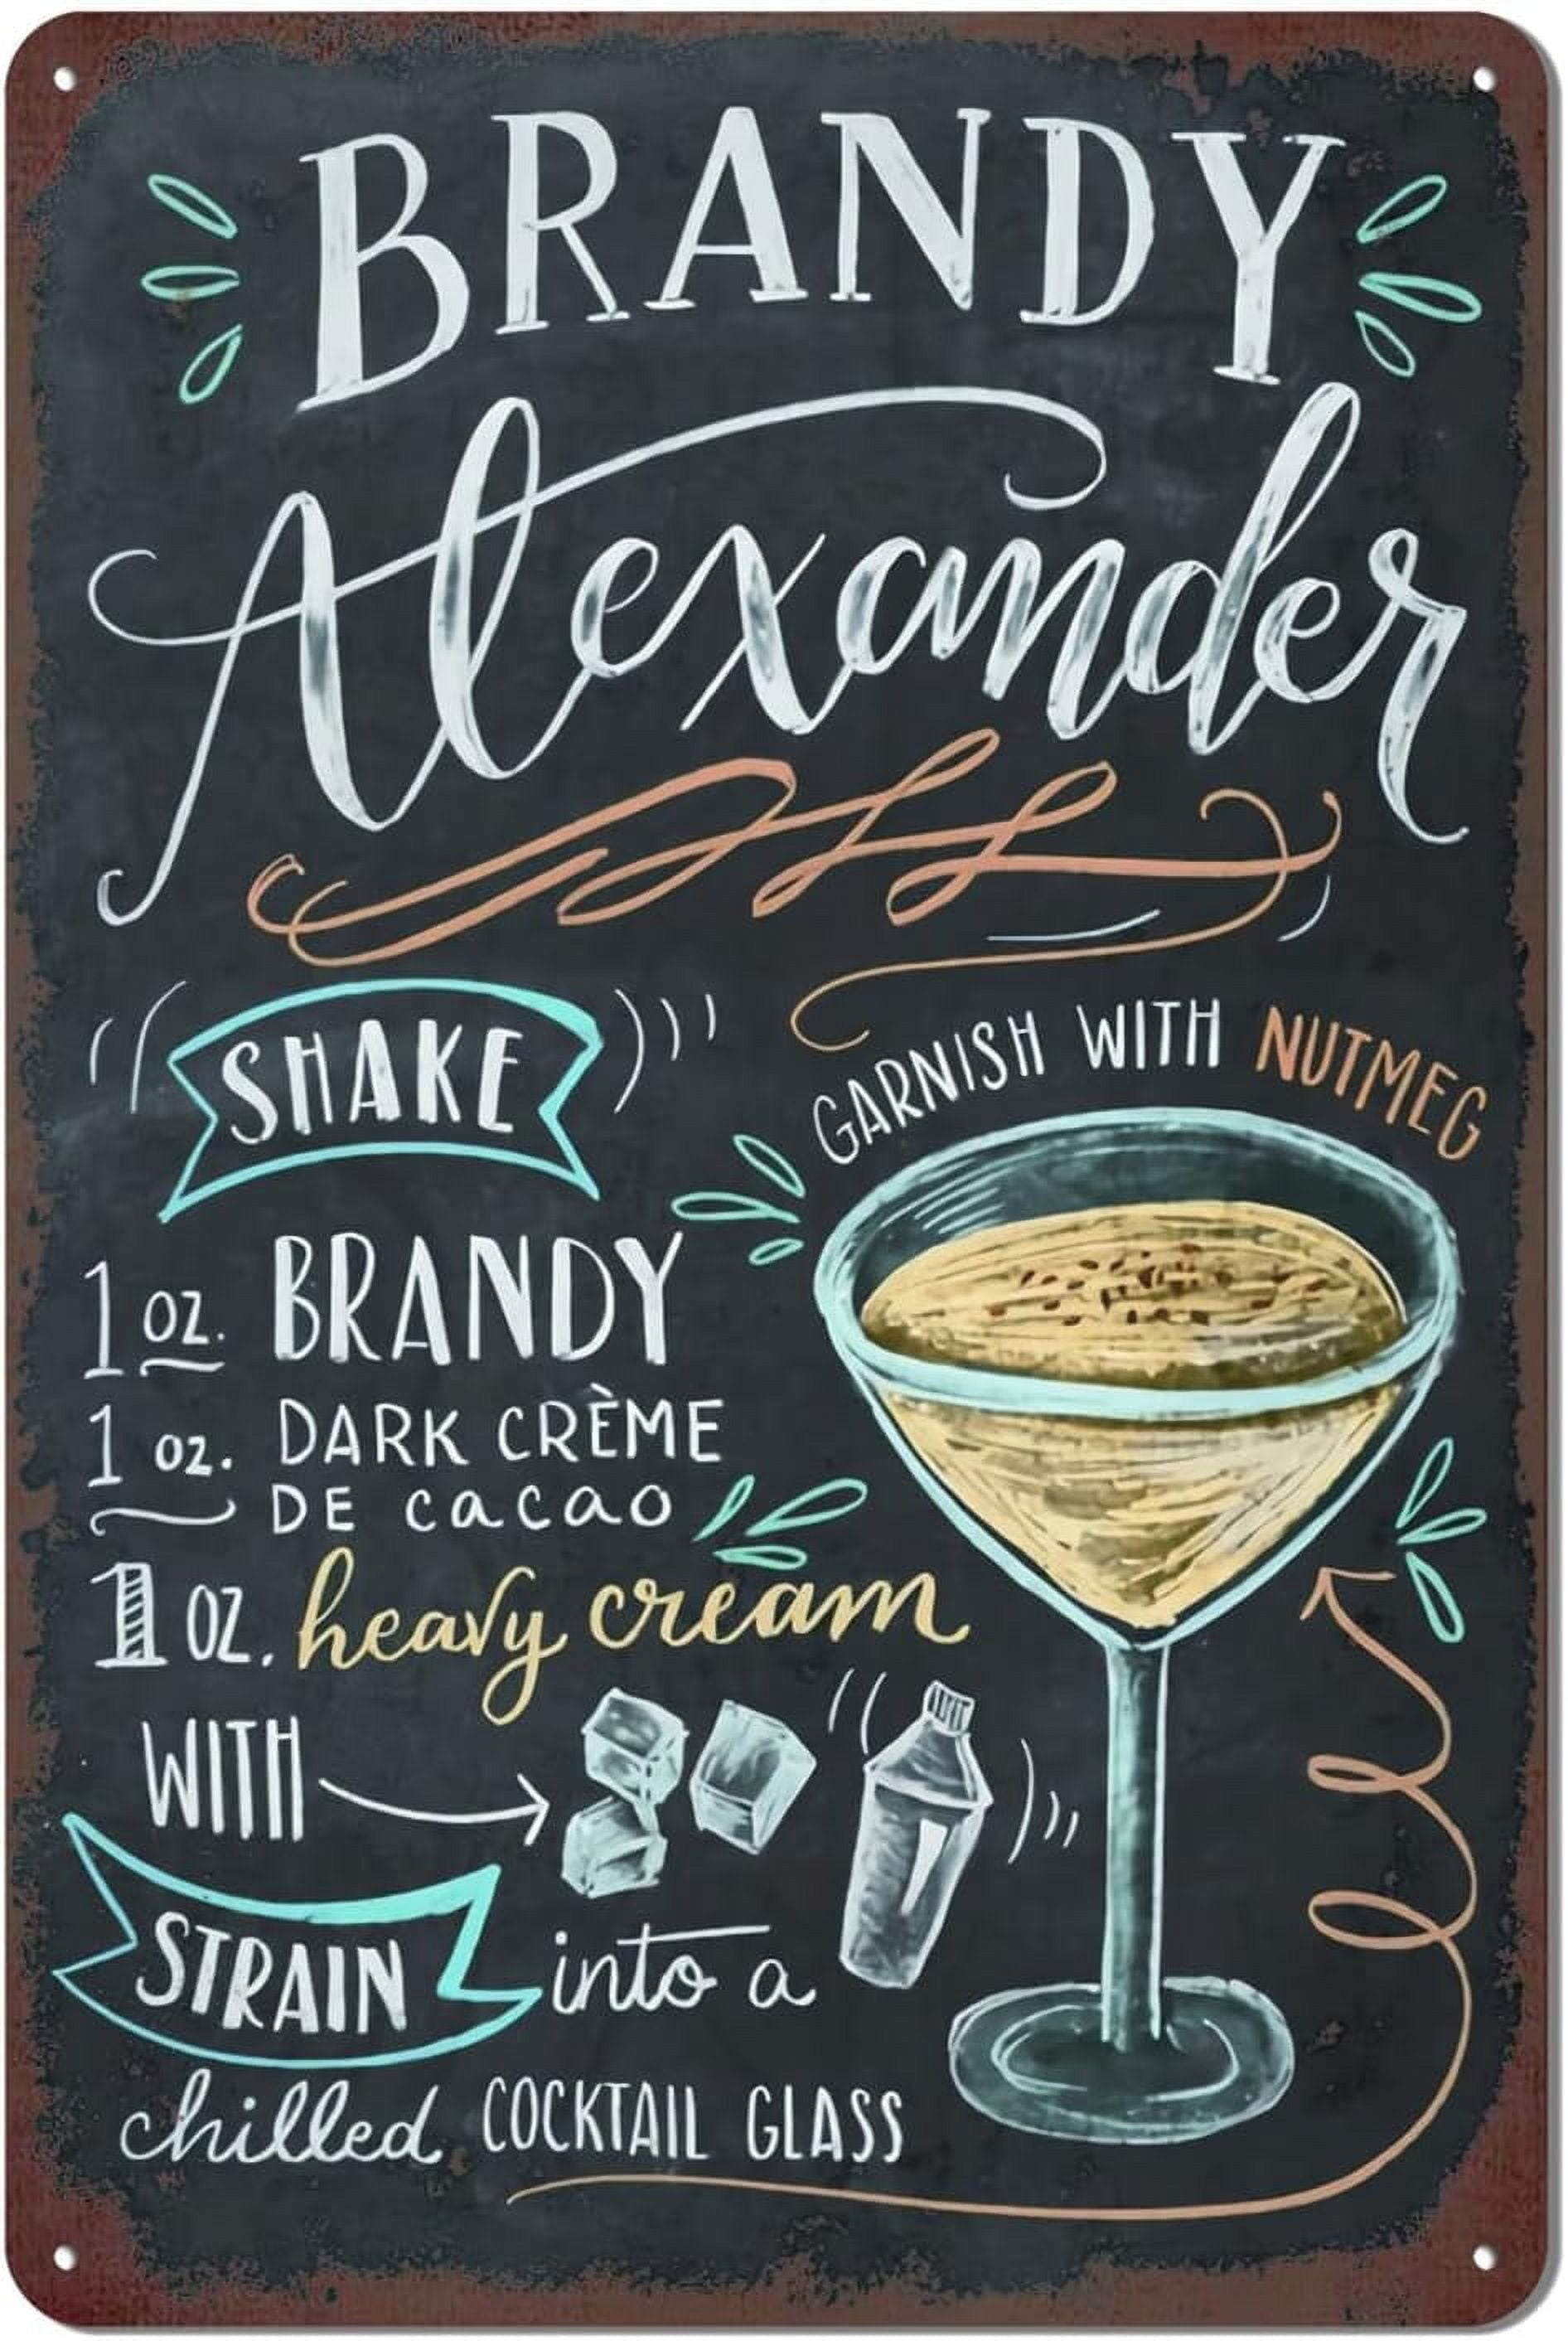 BRANDY
Alexander
SHAKE
GARNISH WITH NUTMEG
1 OZ. BRANDY
1 OZ. DARK CRÈME
DE CACAO
1 OZ. heavy cream
WITH
STRAIN into a
chilled COCKTAIL GLASS